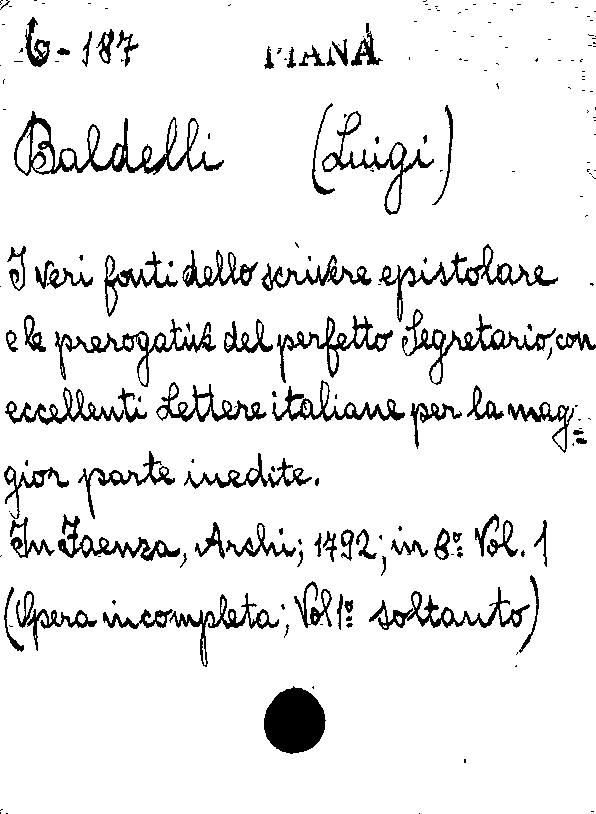 6-187 PIANA
Baldelli (Luigi)
I veri fonti dello scrivere epistolare
e le prerogative del perfetto Segretario, con
eccellenti Lettere italiane per la mag=
gior parte inedite.
In Faenza, Archi; 1792; in 8º Vol. 1
(Opera incompleta; Vol 1º soltanto)